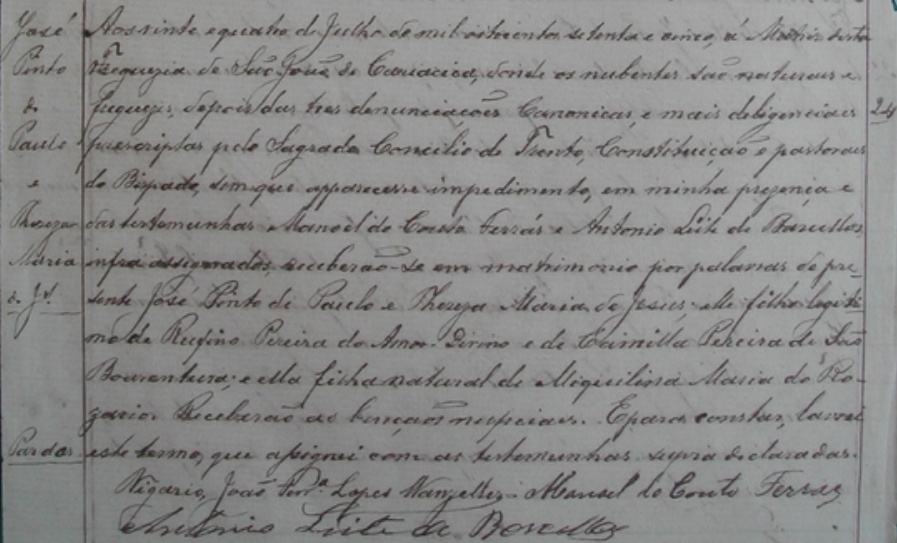 José Aos vinte e quatro de Julho de mil oitocentos setenta e cinco, á Matriz desta
Pinto Freguezia de São José de Cariacica, donde os nubentes são naturaes e
de freguezes, depois das tres denunciações Canonicas, e mais deligencias 24
Paulo prescriptas pelo Sagrado Concilio de Trento, Constituição e pastoraes
e do Bispado, sem que apparecesse impedimento, em minha prezença e
Thereza das testemunhas Manoel do Couto Ferrás e Antonio Leite de Barcellos,
Maria infra assignados, receberão-se em matrimonio por palavras de pre-
de Js. sente José Pinto de Paulo e Thereza Maria de Jesus: elle filho legiti-
mo de Rufino Pereira do Amor Divino e de Camilla Pereira de São
Boaventura; e ella filha natural de Miquilina Maria do Ro-
zario. Receberão as bençaos nupciaes. E para constar, lavrei
Pardos este termo, que assignei com as testemunhas supra declaradas.
Vigario, João Lopes Wanzeller. Manoel do Couto Ferraz
Antonio Leite de Barcellos